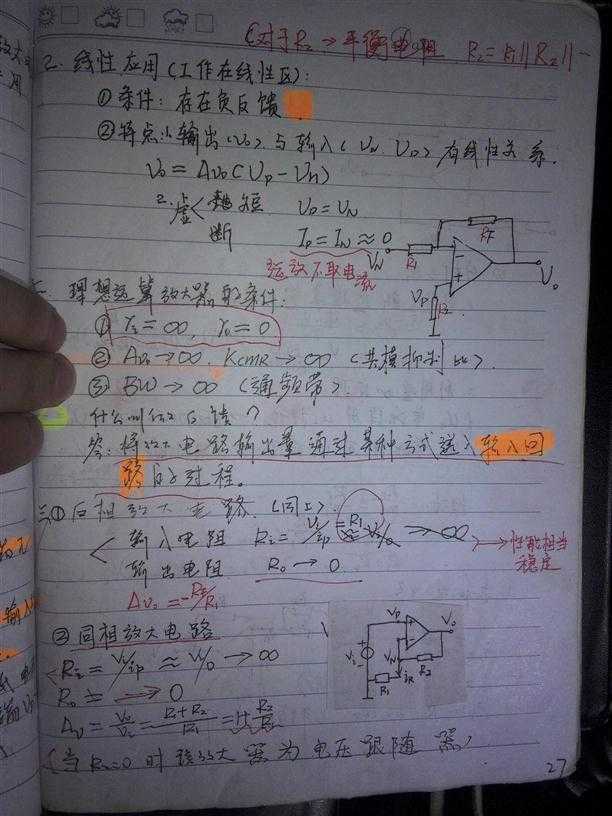 (对于R₂→平衡电阻 R₂=R₁||R₂||
2. 线性应用(工作在线性区):
①条件: 存在负反馈
②特点: 输出(Vo)与输入(VN VP)有线性关系.
Vo = Avo(VP-VN)
2. 虚 短 VP=VN
断 IP=IN≈0
运放不取电流
VN R1 Rf Vo
VP R2
二 理想运算放大器的条件:
① ri=∞, ro=0
② Avo→∞, KCMR→∞ (共模抑制比).
③ BW→∞ (通频带).
什么叫做反馈?
答: 将放大电路输出量通过某种方式送入输入回
路的过程。
三①反相放大电路. (图上).
输入电阻 Ri = Vi/ip = R1 ≈ Vi/0 → ∞ → 性能相当
输出电阻 Ro → 0 稳定
Avo = -Rf/R1
②同相放大电路
Ri = Vi/ip ≈ Vi/0 → ∞
Ro = → 0
Av = Vo/Vi = R1+R2/R1 = 1+R2/R1
(当R2=0时该放大器为电压跟随器)
VP Vo
Vi VN
R1 iR R2
27